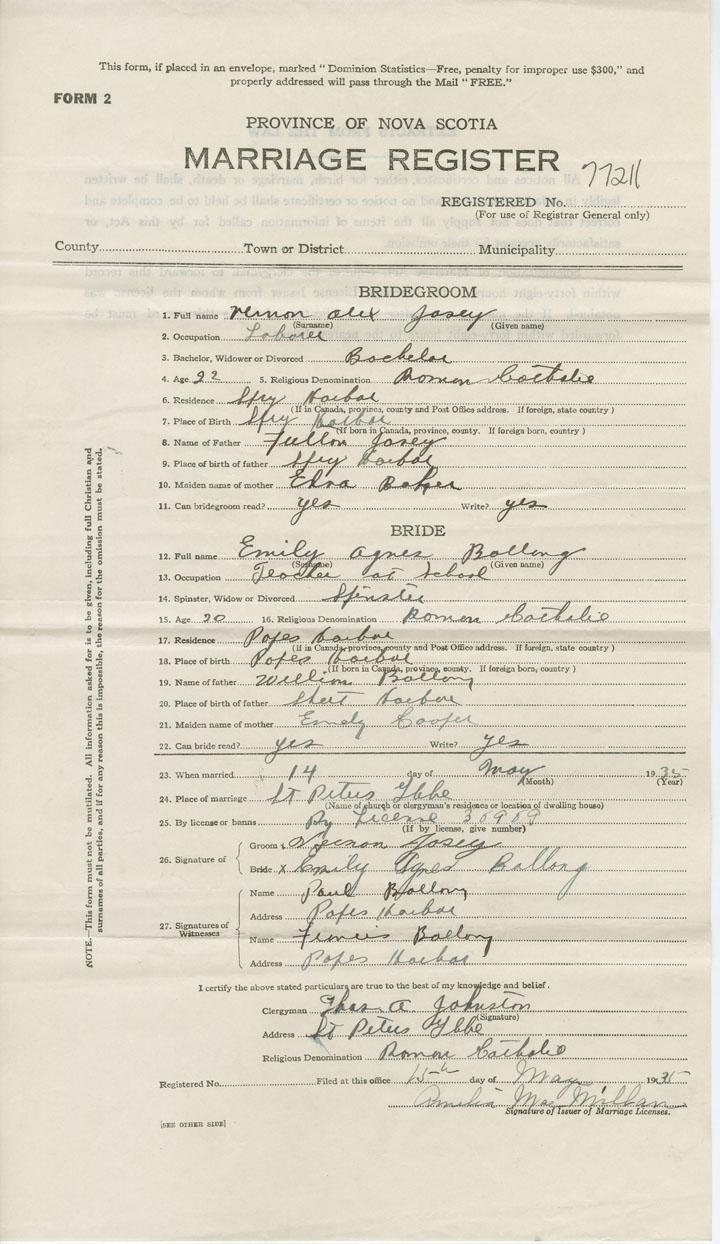 This form, if placed in an envelope, marked "Dominion Statistics—Free, penalty for improper use $300," and
properly addressed will pass through the Mail "FREE."
FORM 2
PROVINCE OF NOVA SCOTIA
MARRIAGE REGISTER
77211
REGISTERED No.
(For use of Registrar General only)
County Town or District Municipality
BRIDEGROOM
1. Full name Vernon Alex Josey
(Surname) (Given name)
2. Occupation Laborer
3. Bachelor, Widower or Divorced Bachelor
4. Age 22 5. Religious Denomination Roman Catholic
6. Residence Spry Harbor
(If in Canada, province, county and Post Office address. If foreign, state country)
7. Place of Birth Spry Harbor
(If born in Canada, province, county. If foreign born, country)
8. Name of Father Fulton Josey
9. Place of birth of father Spry Harbor
10. Maiden name of mother Edna Baker
11. Can bridegroom read? yes Write? yes
BRIDE
12. Full name Emily Agnes Bollong
(Surname) (Given name)
13. Occupation Teacher at School
14. Spinster, Widow or Divorced Spinster
15. Age 20 16. Religious Denomination Roman Catholic
17. Residence Popes Harbor
(If in Canada, province, county and Post Office address. If foreign, state country)
18. Place of birth Popes Harbor
(If born in Canada, province, county. If foreign born, country)
19. Name of father William Bollong
20. Place of birth of father Sheet Harbor
21. Maiden name of mother Emely Cooper
22. Can bride read? yes Write? yes
23. When married 14 day of May 1935
(Month) (Year)
24. Place of marriage St Peters Glebe
(Name of church or clergyman's residence or location of dwelling house)
25. By license or banns By License 30989
(If by license, give number)
26. Signature of
Groom x Vernon Josey
Bride x Emily Agnes Bollong
27. Signatures of Witnesses
Name Paul Bollong
Address Popes Harbor
Name Francis Bollong
Address Popes Harbor
I certify the above stated particulars are true to the best of my knowledge and belief.
Clergyman Chas A. Johnston
(Signature)
Address St Peters Glebe
Religious Denomination Roman Catholic
Registered No. Filed at this office 15th day of May 1935
Amelia MacMillan
Signature of Issuer of Marriage Licenses.
[SEE OTHER SIDE]
NOTE.—This form must not be mutilated. All information asked for is to be given, including full Christian and
surnames of all parties, and if for any reason this is impossible, the reason for the omission must be stated.